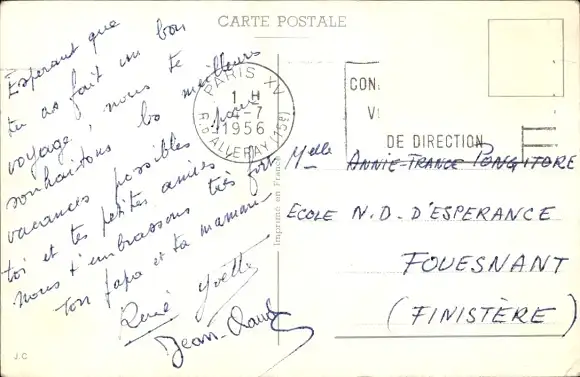 CARTE POSTALE
Espérant que
tu as fait un bon
voyage, nous te
souhaitons les meilleurs
vacances possibles pour
toi et tes petites amies
nous t'embrassons très fort
Ton papa et ta maman
René Yvette
Jean-Claude
PARIS XV
1 H
4-7
1956
R. D'ALLERAY (15e)
CON
VI
DE DIRECTION
Imprimé en France
Melle ANNIE-FRANCE PONGITORE
ECOLE N.D. D'ESPERANCE
FOUESNANT
(FINISTÈRE)
J.C